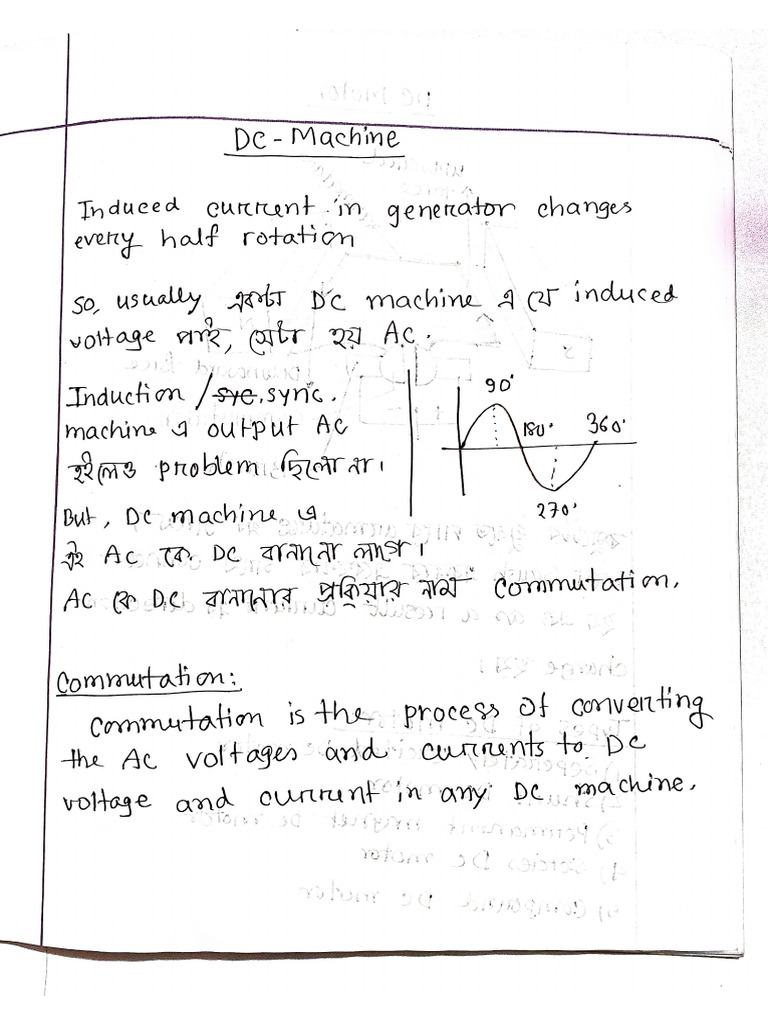 DC - Machine
Induced current in generator changes
every half rotation
So, usually একটা DC machine এ যে induced
voltage পাই, সেটা হয় AC.
Induction / syc. sync.
machine এ output AC
হইলেও problem ছিলো না।
But, DC machine এ
এই AC কে DC বানানো লাগে।
AC কে DC বানানোর প্রক্রিয়ার নাম commutation.
90°
180°
360°
270°
Commutation:
Commutation is the process of converting
the AC voltages and currents to DC
voltage and current in any DC machine.